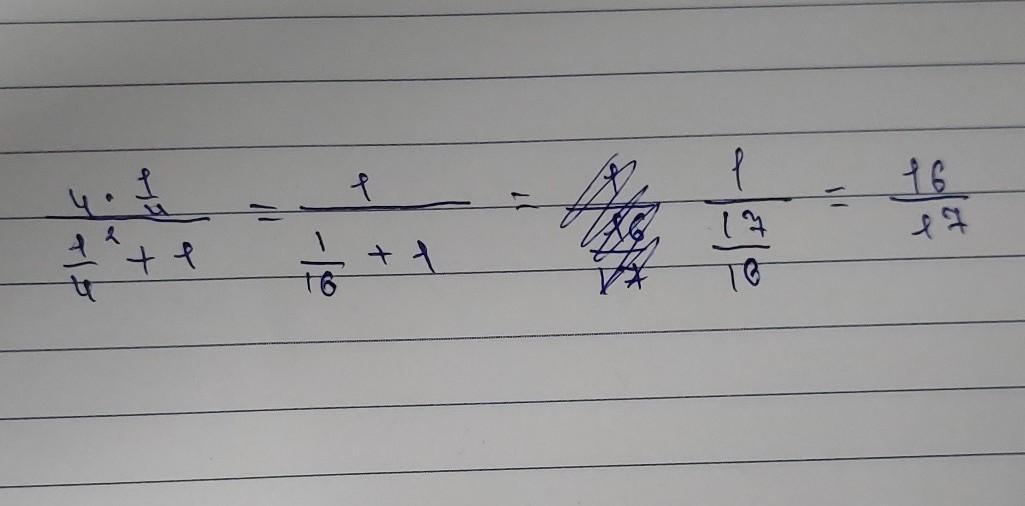 \frac{4 \cdot \frac{1}{4}}{\frac{1}{4}^2 + 1} = \frac{1}{\frac{1}{16} + 1} = \frac{1}{\frac{17}{16}} = \frac{16}{17}